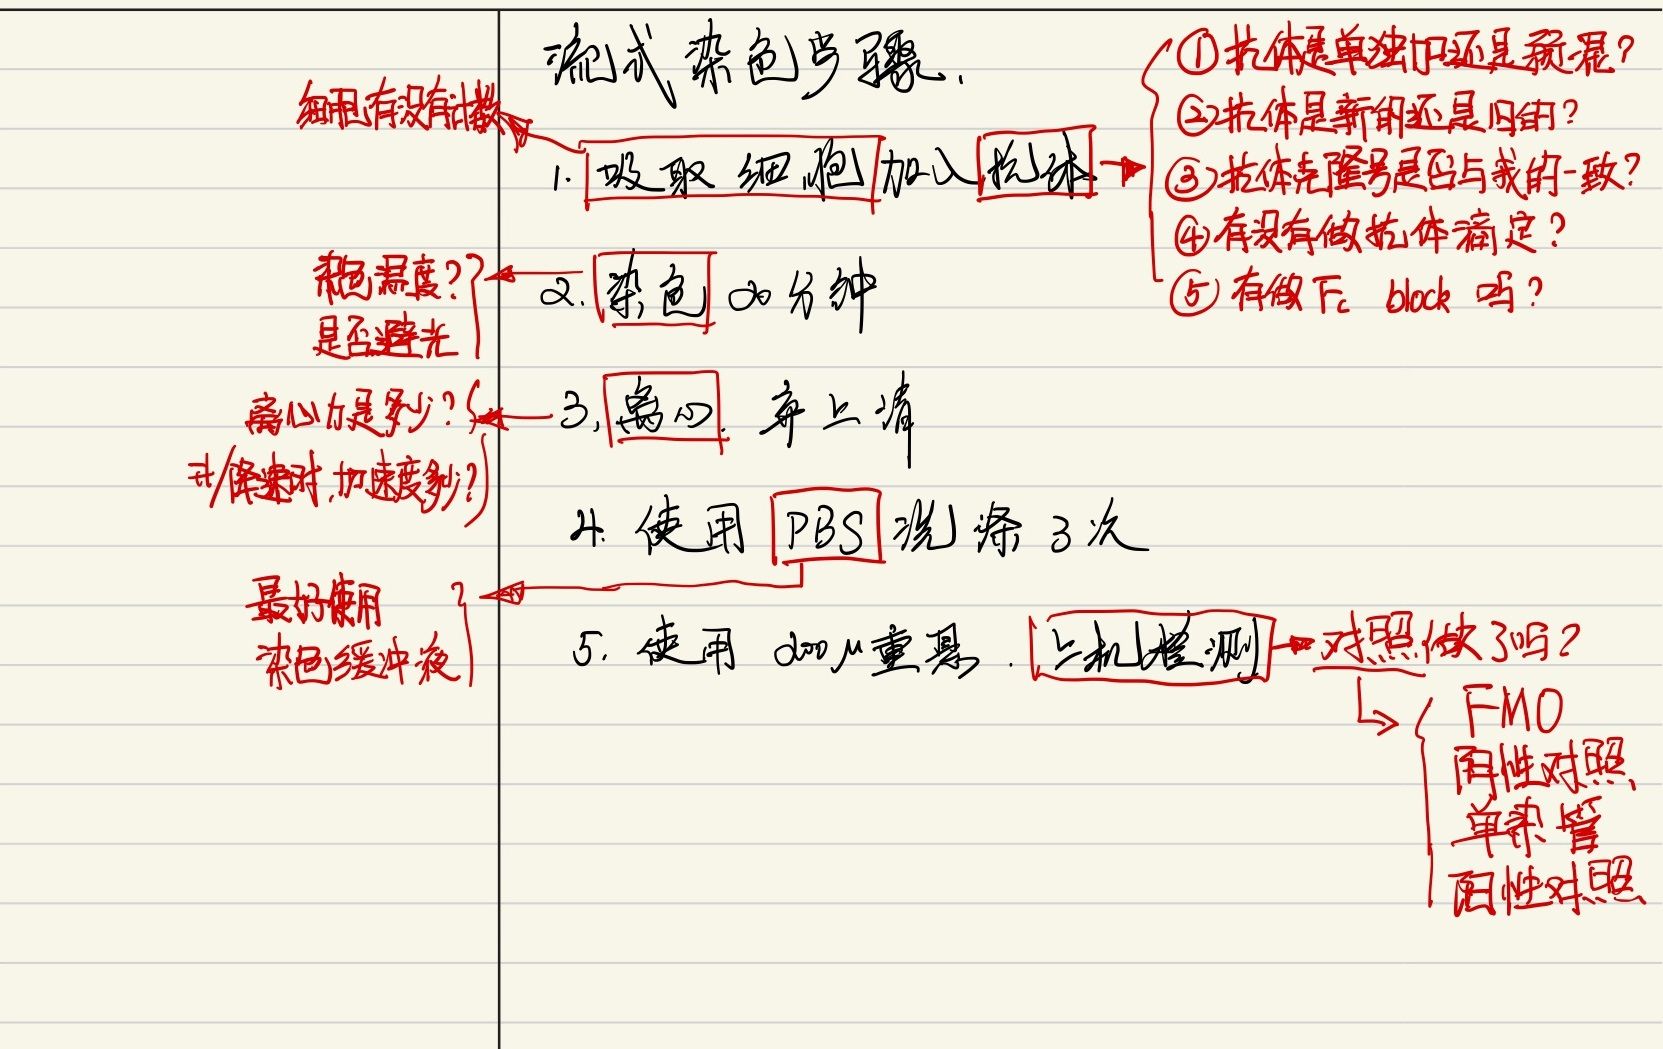 流式染色步骤.
细胞有没有计数
1. 吸取细胞加入抗体
①抗体是单独加还是预混?
②抗体是新的还是旧的?
③抗体克隆号是否与我的一致?
④有没有做抗体滴定?
⑤有做Fc block 吗?
2. 染色 20分钟
染色温度?
是否避光
3. 离心. 弃上清
离心力是多少?
升/降速时,加速度多少?
4. 使用 PBS 洗涤 3次
最好使用
染色缓冲液
5. 使用 200μ重悬. 上机检测
对照做了吗?
FMO
阴性对照
单染管
阳性对照